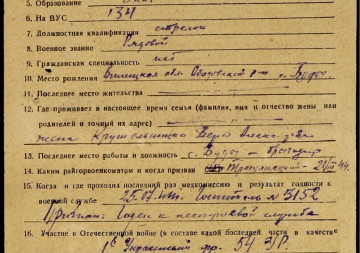 5. Образование
6. На ВУС 134
7. Должностная квалификация стрелок
8. Военное звание Рядовой
9. Гражданская специальность нет
10. Место рождения Винницкая обл.
11. Последнее место жительства
12. Где проживает в настоящее время семья (фамилия, имя и отчество жены или
родителей и точный их адрес)
жена Вера
13. Последнее место работы и должность бригадир
14. Каким райгорвоенкоматом и когда призван 44.
15. Когда и где проходил последний раз медкомиссию и результат годности к
военной службе 25.07. госпиталь № 5152
Признан: Годен к нестроевой службе
16. Участие в Отечественной войне (в составе какой последней части в качестве
1й Украинский фр. 54 УР.